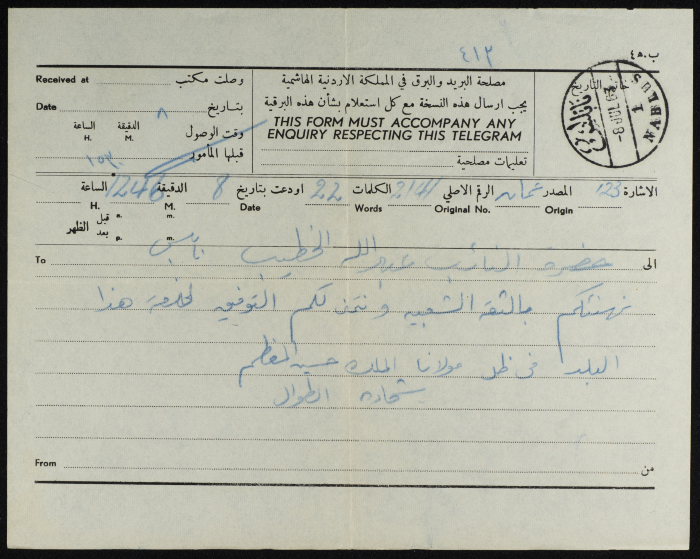 ٤١٢
ب.ه٤
Received at وصلت مكتب
Date بتاريخ ٨
الساعة الدقيقة وقت الوصول
H. M.
١٥٣٠ قبلها المأمور
مصلحة البريد والبرق في المملكة الاردنية الهاشمية
يجب ارسال هذه النسخة مع كل استعلام بشأن هذه البرقية
THIS FORM MUST ACCOMPANY ANY
ENQUIRY RESPECTING THIS TELEGRAM
تعليمات مصلحية
خاتم التاريخ
NABLUS 1
نابلس
الاشارة 123 المصدر عمان الرقم الاصلي 2141 الكلمات 22 اودعت بتاريخ 8 الدقيقة الساعة 1246
Origin Original No. Words Date M. H.
قبل a. m.
بعد p. m.
الظهر
To الى
حضرة النائب عبد الله الخطيب نابلس
نهنئكم بالثقه الشعبيه ونتمن لكم التوفيق لخدمة هذا
البلد في ظل مولانا الملك حسين المعظم
شحاده الطوال
From من